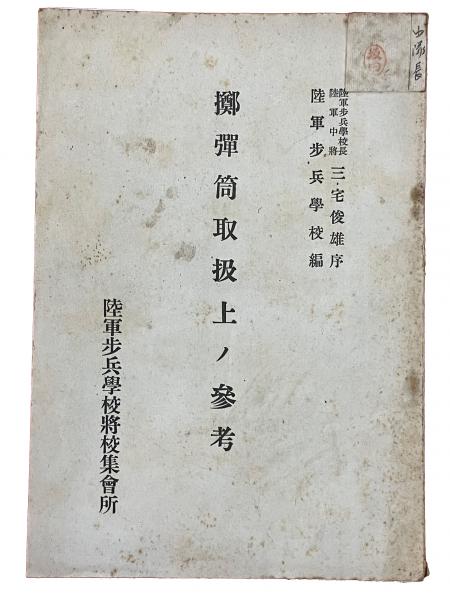 中隊長
陸軍步兵學校長
陸軍中將
三宅俊雄序
陸軍步兵學校編
擲彈筒取扱上ノ參考
陸軍步兵學校將校集會所